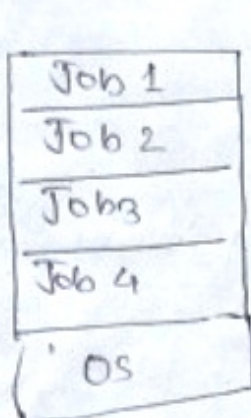 Job 1
Job 2
Job3
Job 4
OS